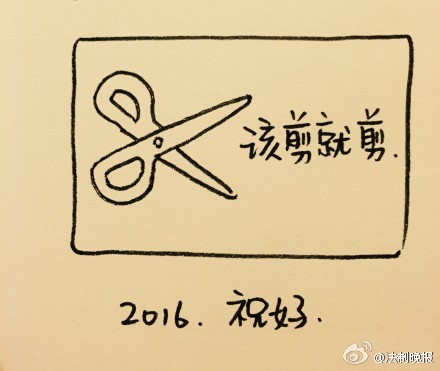 该剪就剪.
2016. 祝好.
@法制晚报